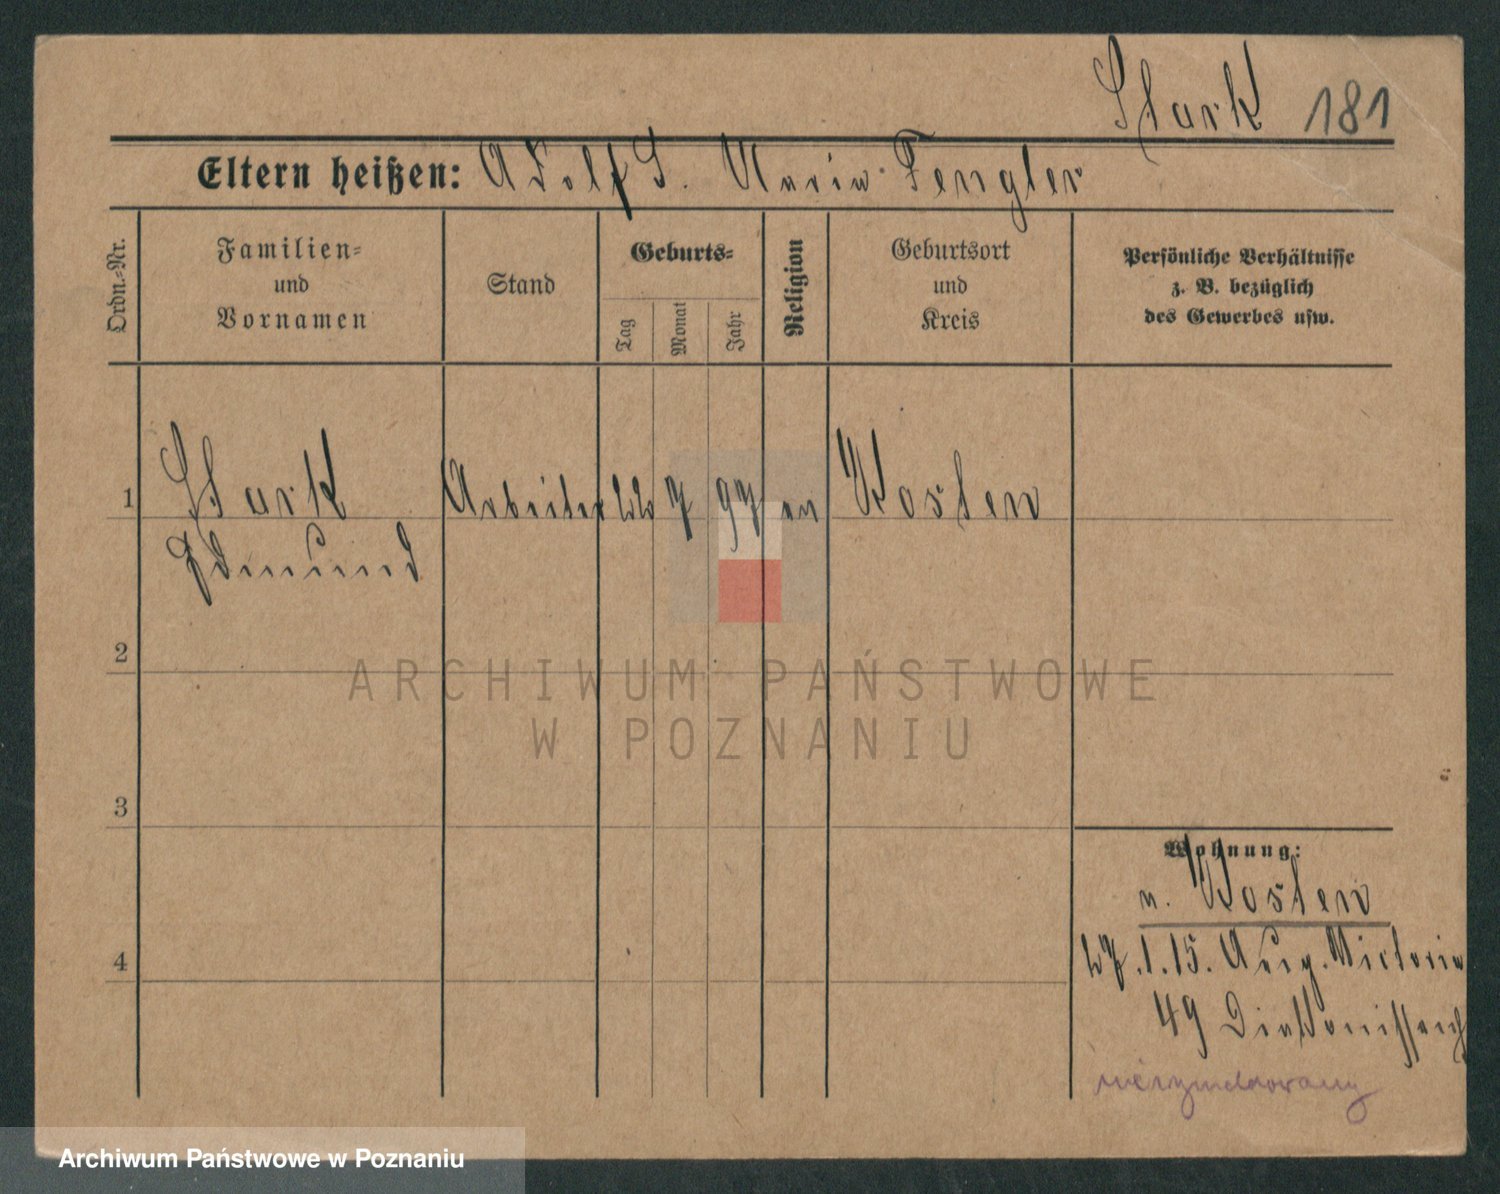 Stark 181
Eltern heißen: Adolf S. Maria Fengler
Ordn.-Nr.
Familien-
und
Vornamen
Stand
Geburts-
Tag
Monat
Jahr
Religion
Geburtsort
und
Kreis
Persönliche Verhältnisse
z. B. bezüglich
des Gewerbes usw.
1
Stark
Edmund
Arbeiter
7
97
ev
Kosten
2
3
4
Wohnung:
n. Kosten
.1.15. Aug. Victoria
49 Diakonissen
niezmeldowany
ARCHIWUM PAŃSTWOWE
W POZNANIU
Archiwum Państwowe w Poznaniu